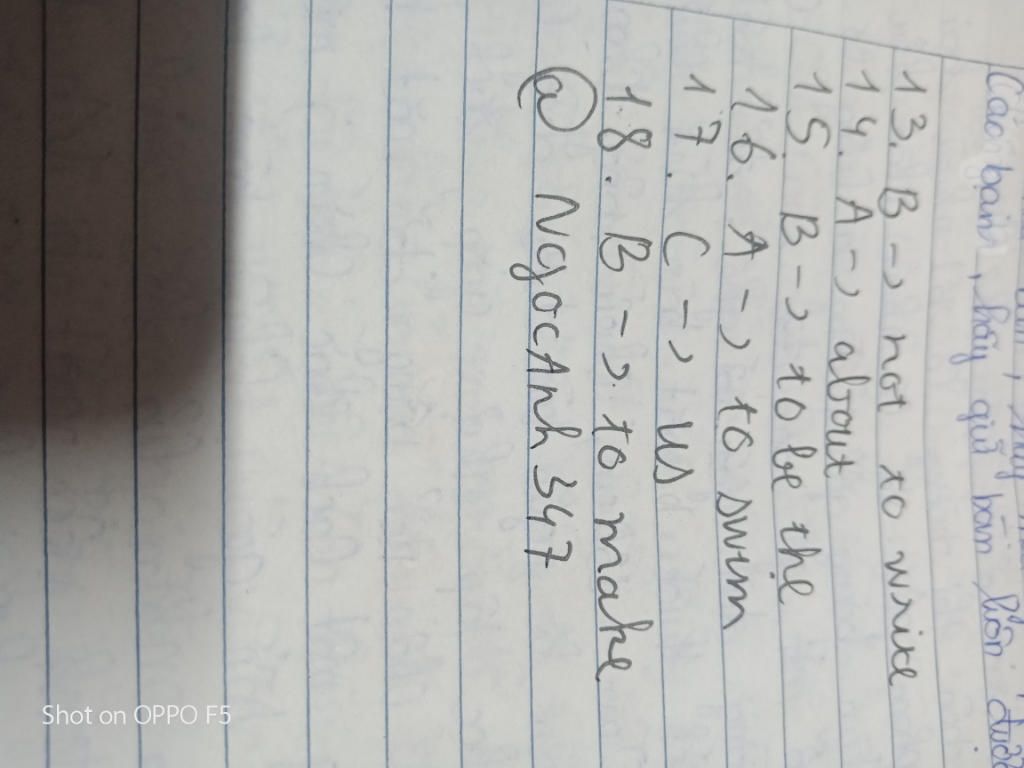 Các bạn, hãy giữ bàn luôn được
13. B -> not to write
14. A -> about
15. B -> to be the
16. A -> to swim
17. C -> us
18. B -> to make
@ NgocAnh347
Shot on OPPO F5